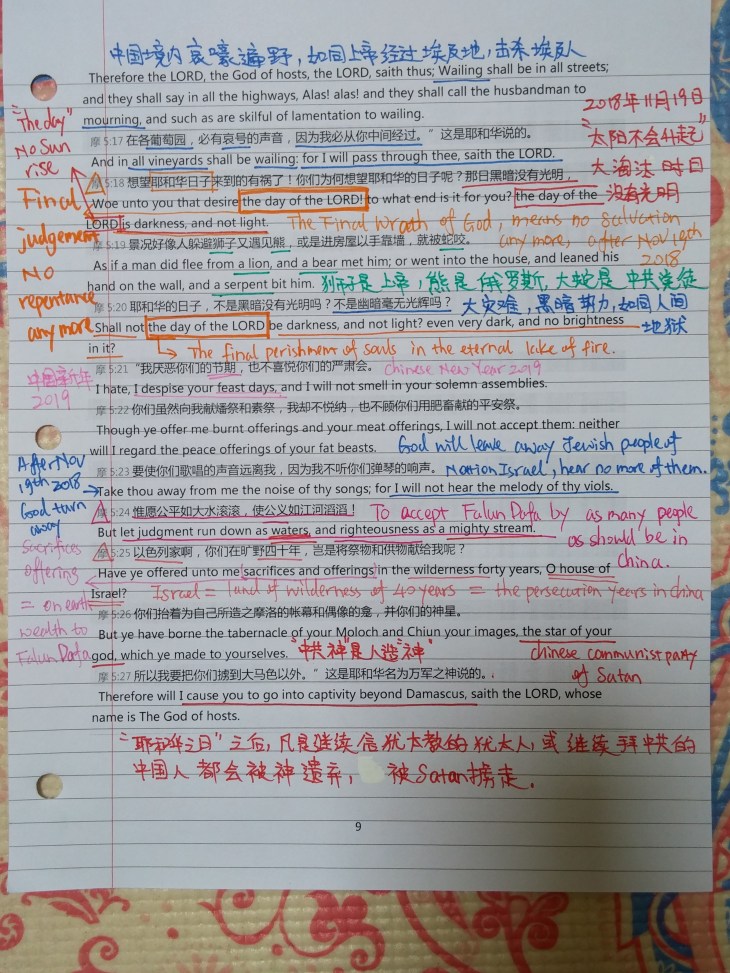 中国境内哀嚎遍野，如同上帝经过埃及地，击杀埃及人
Therefore the LORD, the God of hosts, the LORD, saith thus; Wailing shall be in all streets;
and they shall say in all the highways, Alas! alas! and they shall call the husbandman to
mourning, and such as are skilful of lamentation to wailing.
2018年11月19日
"The day"
No Sun
rise
摩 5:17 在各葡萄园，必有哀号的声音，因为我必从你中间经过。” 这是耶和华说的。
"太阳不会升起"
And in all vineyards shall be wailing: for I will pass through thee, saith the LORD.
大淘汰时日
摩 5:18 想望耶和华日子来到的有祸了！你们为何想望耶和华的日子呢？那日黑暗没有光明，
没有光明
Woe unto you that desire the day of the LORD! to what end is it for you? the day of the
LORD is darkness, and not light.
The Final Wrath of God, means no salvation
any more, after Nov 19th
2018
Final
judgement
No
repentance
any more
摩 5:19 景况好像人躲避狮子又遇见熊，或是进房屋以手靠墙，就被蛇咬。
As if a man did flee from a lion, and a bear met him; or went into the house, and leaned his
hand on the wall, and a serpent bit him.
狮子是上帝，熊是俄罗斯，大蛇是中共党徒
摩 5:20 耶和华的日子，不是黑暗没有光明吗？不是幽暗毫无光辉吗？
大灾难，黑暗势力，如同人间
地狱
Shall not the day of the LORD be darkness, and not light? even very dark, and no brightness
in it?
The final perishment of souls in the eternal lake of fire.
摩 5:21 “我厌恶你们的节期，也不喜悦你们的严肃会。
chinese New Year 2019
中国新年
2019
I hate, I despise your feast days, and I will not smell in your solemn assemblies.
摩 5:22 你们虽然向我献燔祭和素祭，我却不悦纳，也不顾你们用肥畜献的平安祭。
Though ye offer me burnt offerings and your meat offerings, I will not accept them: neither
will I regard the peace offerings of your fat beasts.
God will leave away Jewish people of
Nation Israel, hear no more of them.
After Nov
19th 2018
God turn
away
摩 5:23 要使你们歌唱的声音远离我，因为我不听你们弹琴的响声。
Take thou away from me the noise of thy songs; for I will not hear the melody of thy viols.
摩 5:24 惟愿公平如大水滚滚，使公义如江河滔滔！
To accept Falun Dafa by as many people
as should be in
China.
But let judgment run down as waters, and righteousness as a mighty stream.
摩 5:25 以色列家啊，你们在旷野四十年，岂是将祭物和供物献给我呢？
Have ye offered unto me sacrifices and offerings in the wilderness forty years, O house of
Israel?
Israel = land of wilderness of 40 years = the persecution years in china
Sacrifices
offering
= on earth
wealth to
Falun Dafa
摩 5:26 你们抬着为自己所造之摩洛的帐幕和偶像的龛，并你们的神星。
But ye have borne the tabernacle of your Moloch and Chiun your images, the star of your
god, which ye made to yourselves.
"中共神"是人造"神"
chinese communist party
of Satan
摩 5:27 所以我要把你们掳到大马色以外。” 这是耶和华名为万军之神说的。
Therefore will I cause you to go into captivity beyond Damascus, saith the LORD, whose
name is The God of hosts.
"耶和华之日"之后，凡是继续信犹太教的犹太人，或继续拜中共的
中国人都会被神遗弃，被Satan掳走.
9